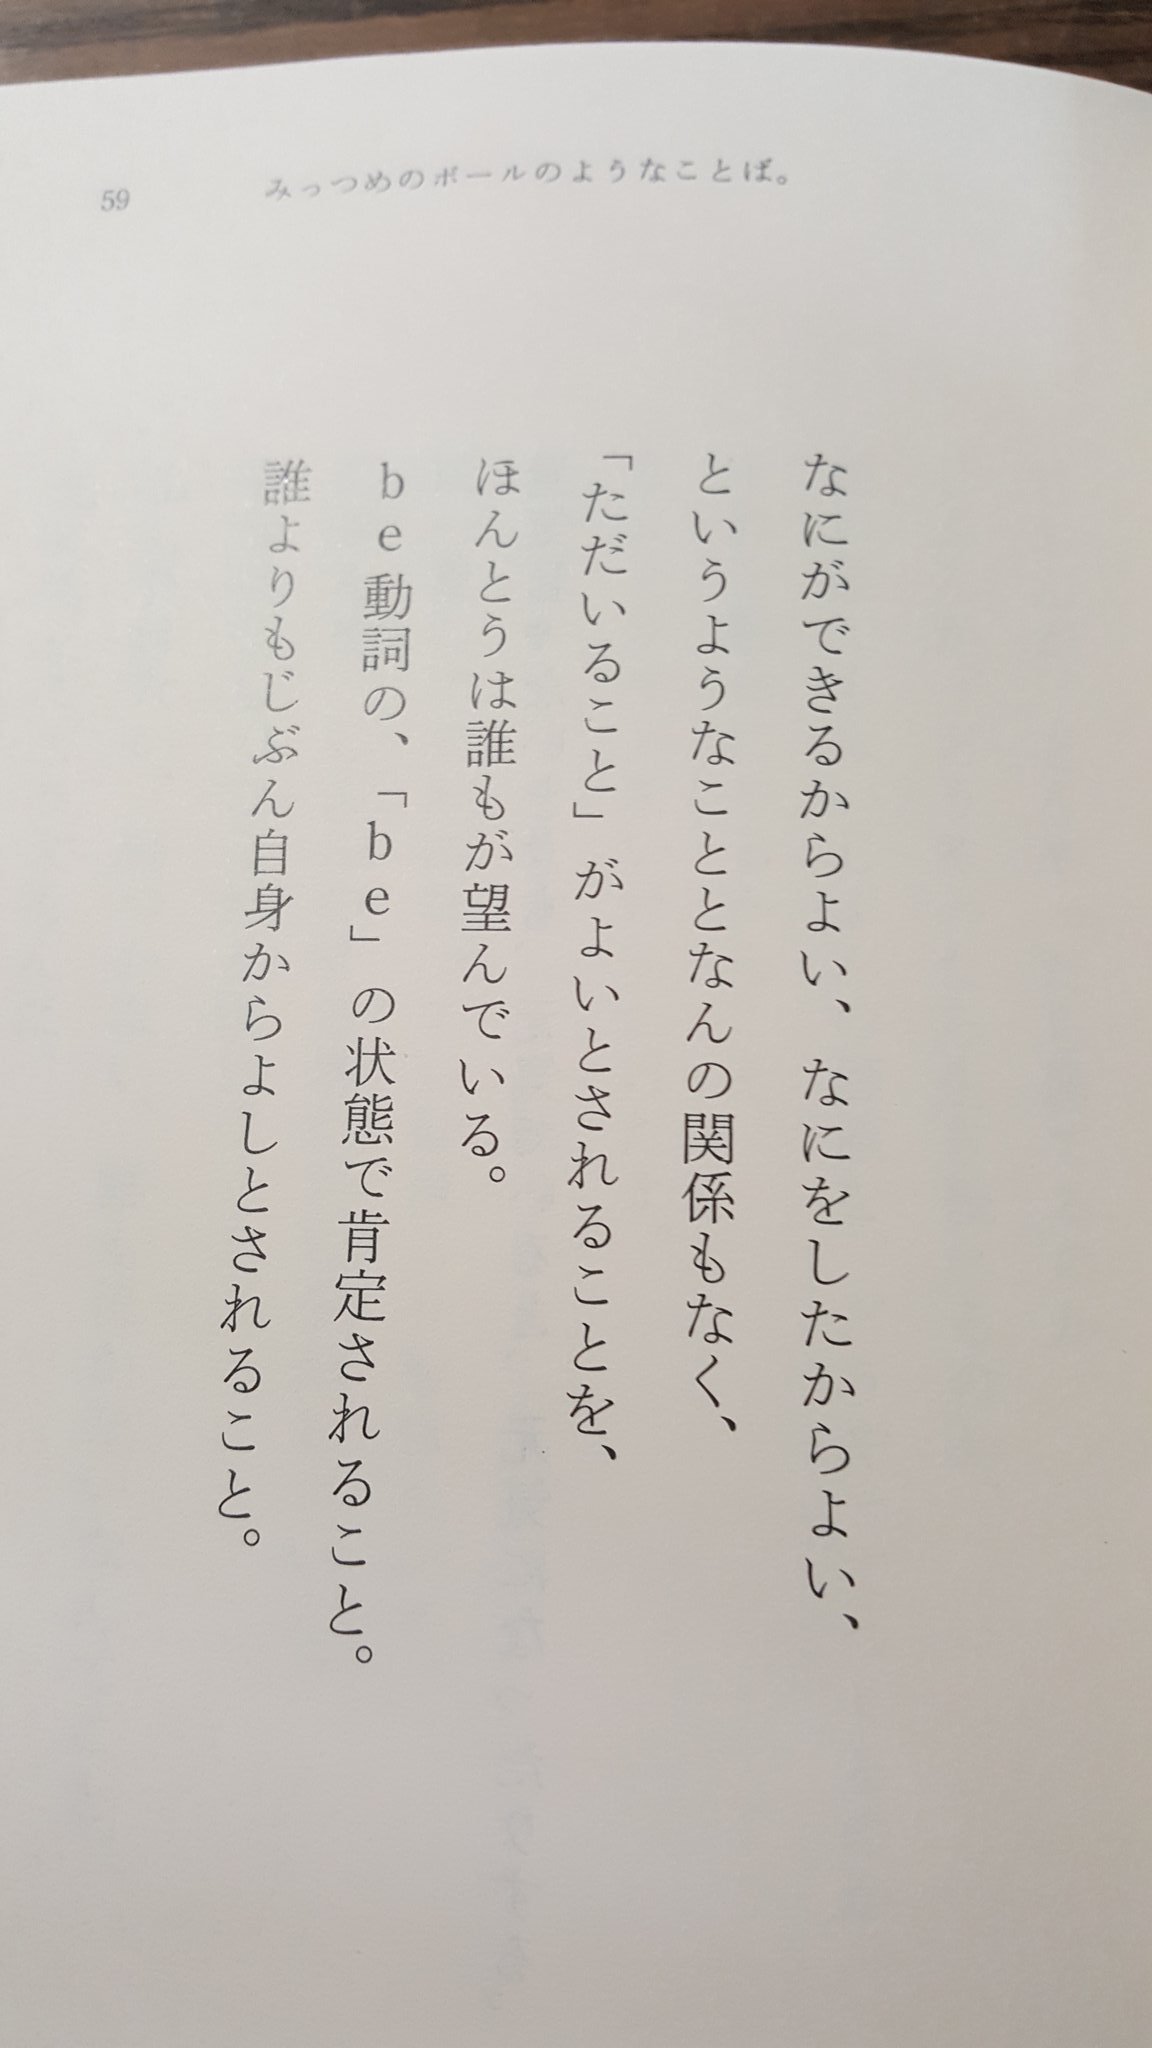 みっつめのボールのようなことば。
59
なにができるからよい、なにをしたからよい、
というようなこととなんの関係もなく、
「ただいること」がよいとされることを、
ほんとうは誰もが望んでいる。
be動詞の、「be」の状態で肯定されること。
誰よりもじぶん自身からよしとされること。